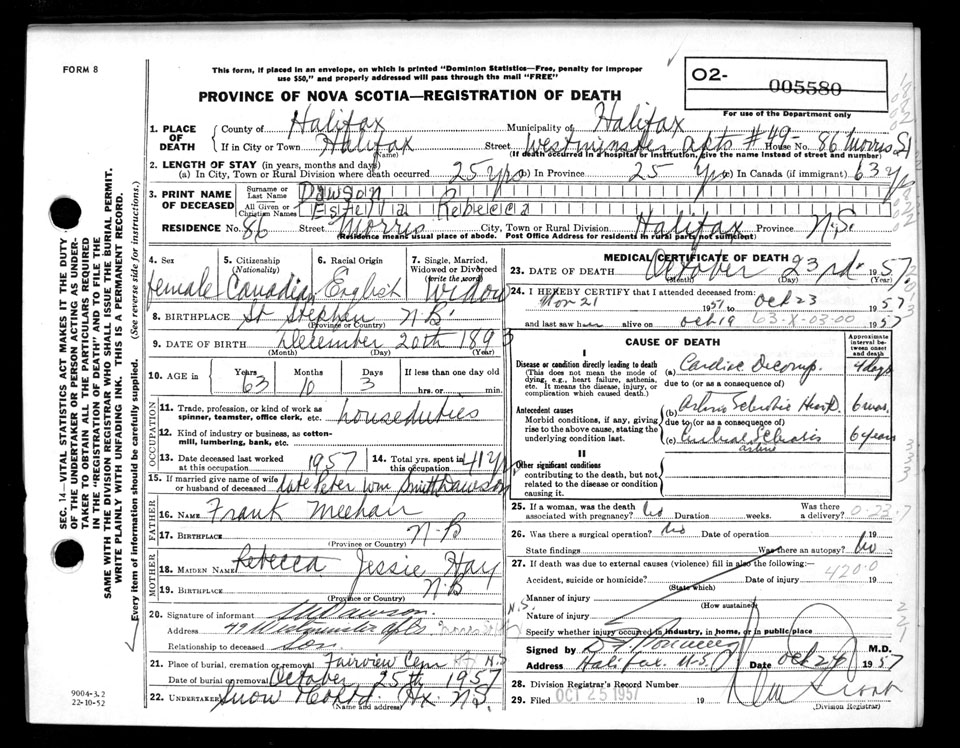 FORM 8
This form, if placed in an envelope, on which is printed "Dominion Statistics—Free, penalty for improper
use $50," and properly addressed will pass through the mail "FREE"
O2- 005580
For use of the Department only
PROVINCE OF NOVA SCOTIA—REGISTRATION OF DEATH
1. PLACE OF DEATH { County of Halifax Municipality of Halifax
If in City or Town Halifax (Name) Street Westminster Apts #49- House No. 86 Morris St
(If death occurred in a hospital or institution, give the name instead of street and number)
2. LENGTH OF STAY (in years, months and days)
(a) In City, Town or Rural Division where death occurred 25 yrs (b) In Province 25 yrs (c) In Canada (if immigrant) 63 yrs
3. PRINT NAME OF DECEASED
Surname or Last Name Dawson
All Given or Christian Names Estella Rebecca
RESIDENCE No. 86 Street Morris City, Town or Rural Division Halifax Province N.S.
(Residence means usual place of abode. Post Office Address for residents in rural parts not sufficient)
4. Sex female
5. Citizenship (Nationality) Canadian
6. Racial Origin English
7. Single, Married, Widowed or Divorced (write the word) Widow
8. BIRTHPLACE St Stephen N.B.
(Province or Country)
9. DATE OF BIRTH December 20th 1893
(Month) (Day) (Year)
10. AGE in Years 63 Months 10 Days 3 If less than one day old hrs. or min.
OCCUPATION
11. Trade, profession, or kind of work as spinner, teamster, office clerk, etc. houseduties
12. Kind of industry or business, as cotton-mill, lumbering, bank, etc.
13. Date deceased last worked at this occupation 1957
14. Total yrs. spent in this occupation 41 yrs
15. If married give name of wife or husband of deceased late Peter Wm Smith Dawson
FATHER
16. NAME Frank Meehan
17. BIRTHPLACE N-B
(Province or Country)
MOTHER
18. MAIDEN NAME Rebecca Jessie Hay
19. BIRTHPLACE N-B
(Province or Country)
20. Signature of informant Dawson.
Address 49 Westminster Apts N.S.
Relationship to deceased son
21. Place of burial, cremation or removal Fairview Cem N.S
Date of burial or removal October 25th 1957
22. UNDERTAKER Snow Co Ltd. Hx NS
(Name and address)
MEDICAL CERTIFICATE OF DEATH
23. DATE OF DEATH October 23rd 1957
(Month) (Day) (Year)
24. I HEREBY CERTIFY that I attended deceased from:
Nov 21 1951 to Oct 23 1957
and last saw her alive on Oct 19 1957
63-X-03-00
CAUSE OF DEATH
Approximate interval between onset and death
I
Disease or condition directly leading to death
(This does not mean the mode of dying, e.g., heart failure, asthenia, etc. It means the disease, injury, or complication which caused death.)
(a) Cardiac Decomp. 4 days
due to (or as a consequence of)
Antecedent causes
Morbid conditions, if any, giving rise to the above cause, stating the underlying condition last.
(b) Arterio Sclerotic Heart 6 mos.
due to (or as a consequence of)
(c) 6 years
II
Other significant conditions
contributing to the death, but not related to the disease or condition causing it.
25. If a woman, was the death associated with pregnancy? No Duration weeks. Was there a delivery?
0-23-7
26. Was there a surgical operation? No Date of operation 19
State findings Was there an autopsy? No
27. If death was due to external causes (violence) fill in also the following:
Accident, suicide or homicide? Date of injury 19
(State which)
4200
Manner of injury
(How sustained)
Nature of injury
Specify whether injury occurred in industry, in home, or in public place
Signed by M.D.
Address Halifax N.S. Date Oct 24 1957
28. Division Registrar's Record Number
29. Filed OCT 25 1957 19
(Division Registrar)
SEC. 14—VITAL STATISTICS ACT MAKES IT THE DUTY
OF THE UNDERTAKER OR PERSON ACTING AS UNDER-
TAKER TO OBTAIN ALL THE PARTICULARS REQUIRED
IN THE "REGISTRATION OF DEATH" AND TO FILE THE
SAME WITH THE DIVISION REGISTRAR WHO SHALL ISSUE THE BURIAL PERMIT.
WRITE PLAINLY WITH UNFADING INK. THIS IS A PERMANENT RECORD.
Every item of information should be carefully supplied. (See reverse side for instructions.)
9004-3.2
22-10-52